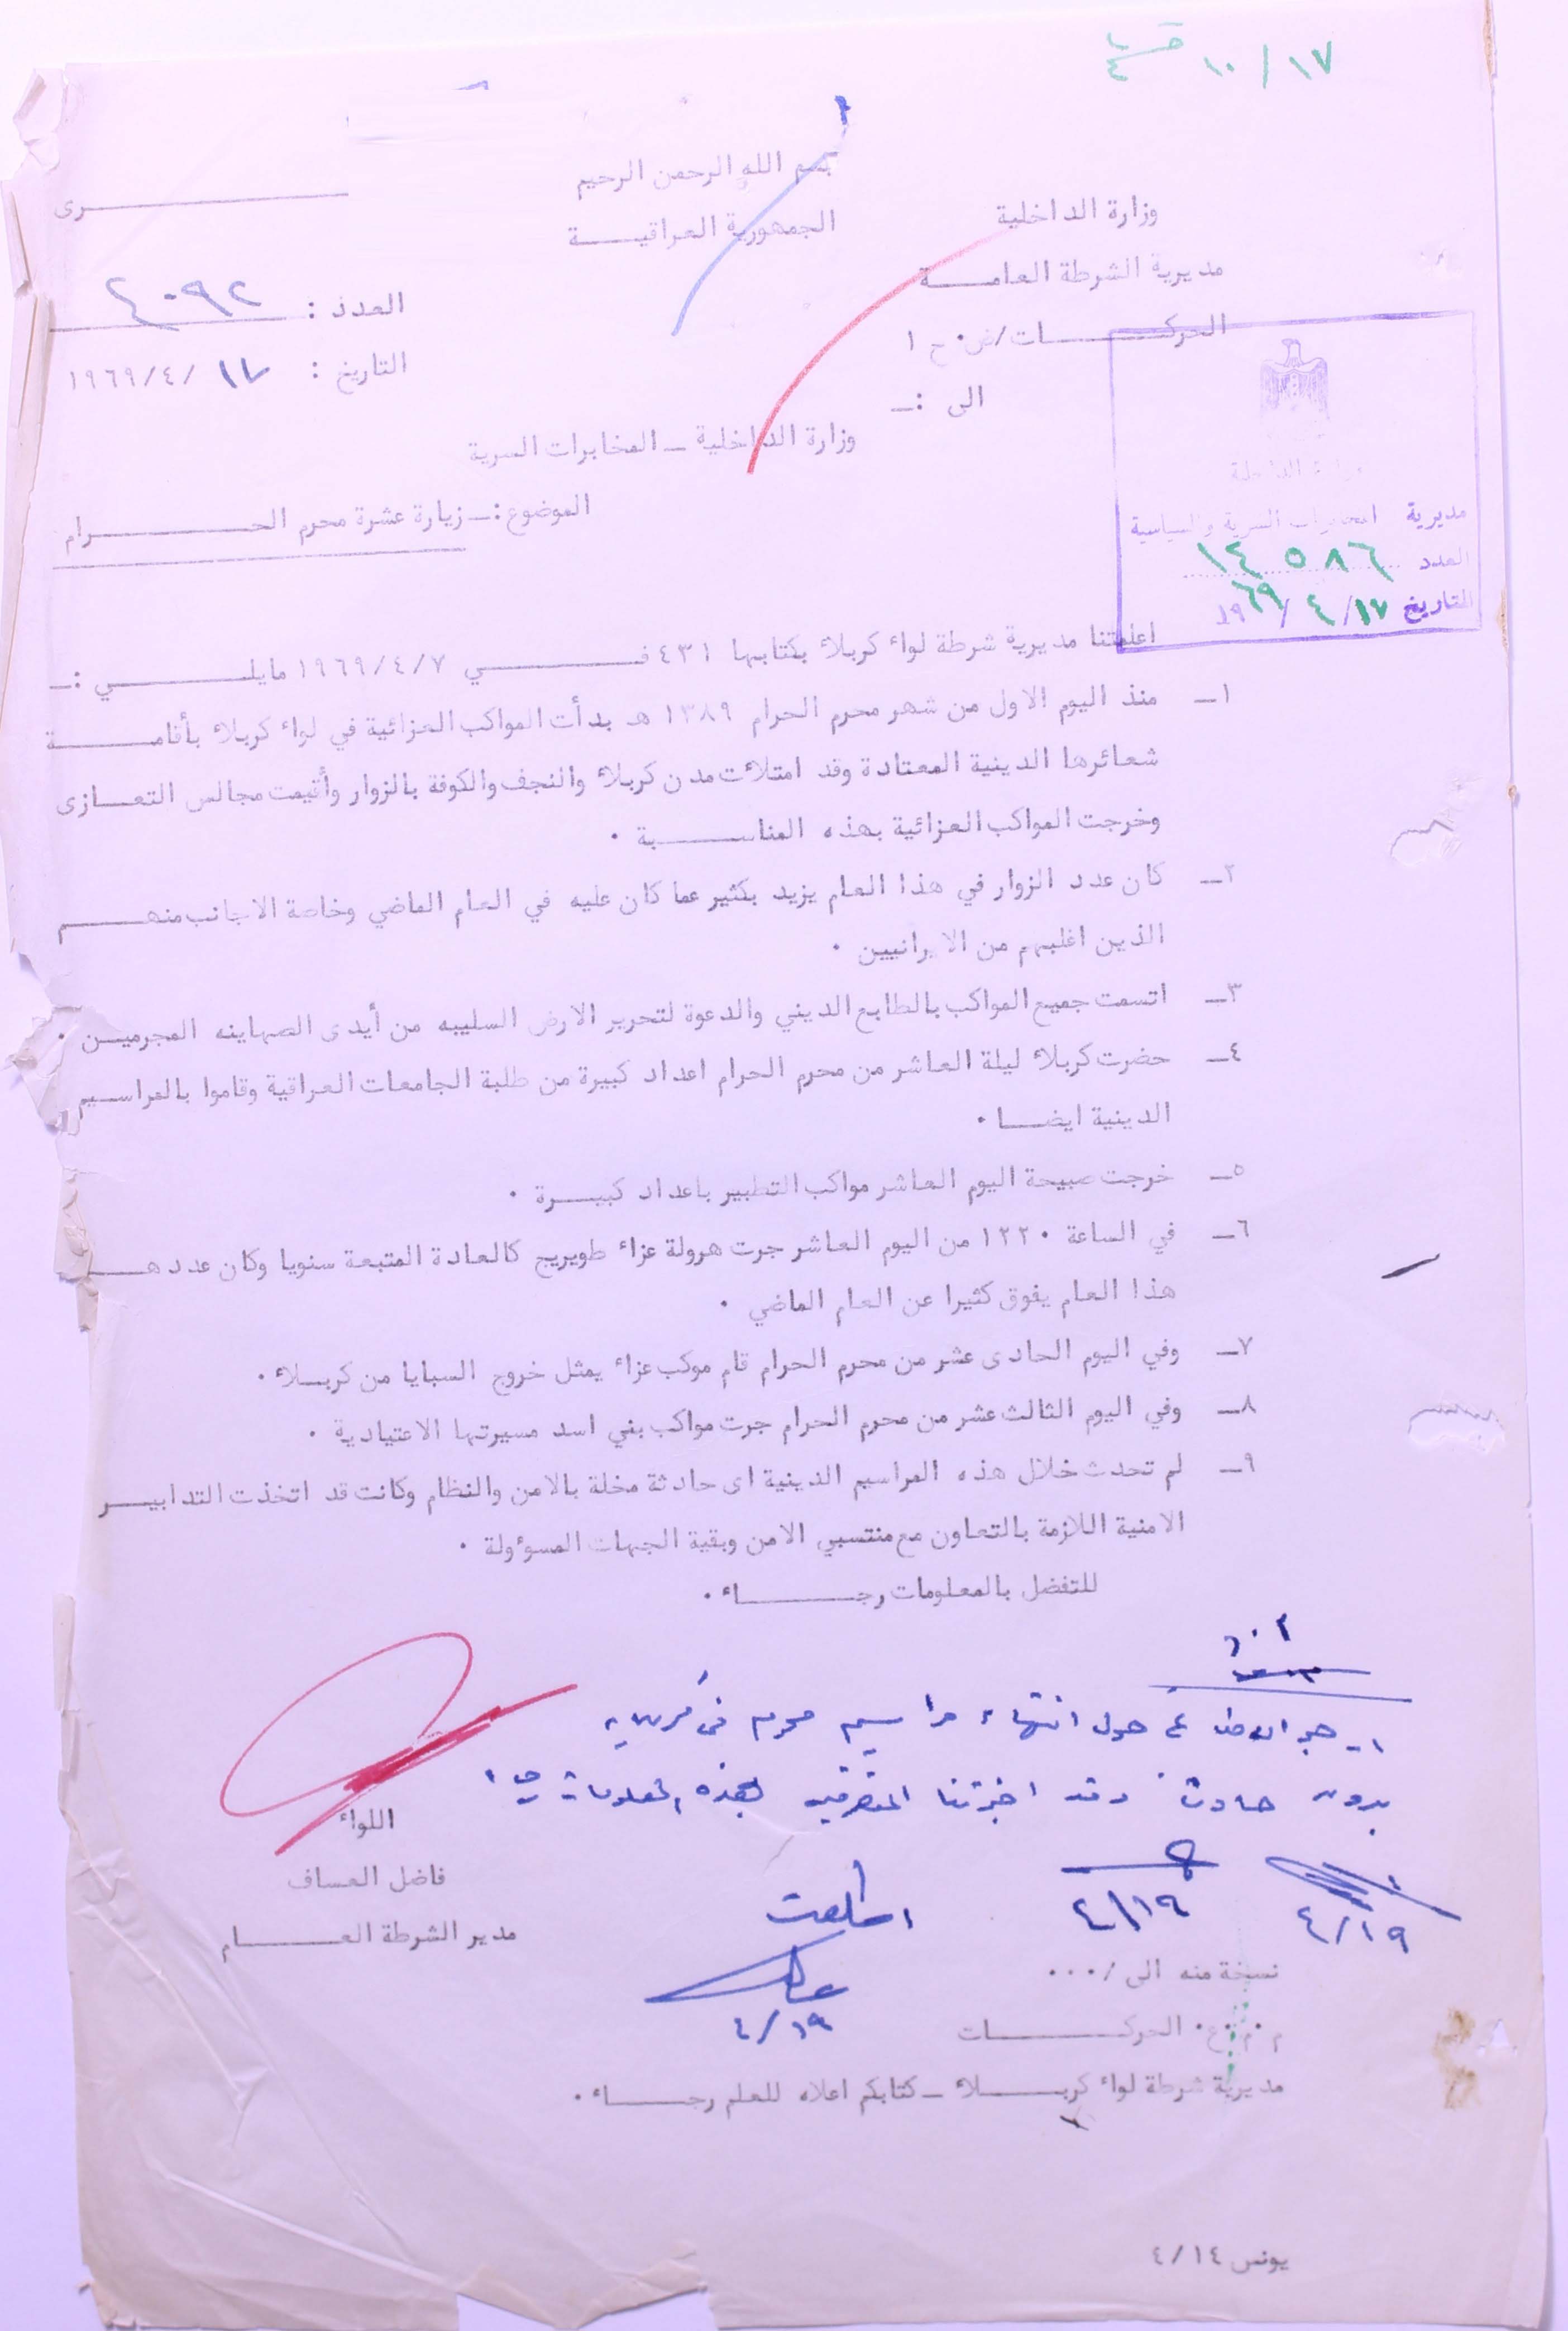 ١٠/١٧
بسم الله الرحمن الرحيم
الجمهورية العراقيـــة
وزارة الداخلية
مديرية الشرطة العامـــة
الحركـــات/ض٠ح ١
ـرى
العدد : ٤٠٩٢
التاريخ : ١٧/ ١٩٦٩/٤
الى :ــ
وزارة الداخلية ــ المخابرات السرية
الموضوع :ــ زيارة عشرة محرم الحـــرام
وزارة الداخلية
مديرية المخابرات السرية والسياسية
العدد ١٤٥٨٦
التاريخ ١٧/ ٤ / ١٩٦٩
اعلمتنا مديرية شرطة لواء كربلاء بكتابها ٤٣١ فـــي ١٩٦٩/٤/٧ مايلـــي :ــ
١ــ منذ اليوم الاول من شهر محرم الحرام ١٣٨٩ هـ بدأت المواكب العزائية في لواء كربلاء بأقامـــة
شعائرها الدينية المعتادة وقد امتلات مدن كربلاء والنجف والكوفة بالزوار وأقيمت مجالس التعـــازى
وخرجت المواكب العزائية بهذه المناســـبة ٠
٢ــ كان عدد الزوار في هذا العام يزيد بكثير عما كان عليه في العام الماضي وخاصة الاجانب منهـــم
الذين اغلبهم من الايرانيين ٠
٣ــ اتسمت جميع المواكب بالطابع الديني والدعوة لتحرير الارض السليبه من أيدى الصهاينه المجرميـــن ٠
٤ــ حضرت كربلاء ليلة العاشر من محرم الحرام اعداد كبيرة من طلبة الجامعات العراقية وقاموا بالمراسـيم
الدينية ايضـــا ٠
٥ــ خرجت صبيحة اليوم العاشر مواكب التطبير باعداد كبيـــرة ٠
٦ــ في الساعة ١٢٢٠ من اليوم العاشر جرت هرولة عزاء طويريج كالعادة المتبعة سنويا وكان عددهـــم
هذا العام يفوق كثيرا عن العام الماضي ٠
٧ــ وفي اليوم الحادى عشر من محرم الحرام قام موكب عزاء يمثل خروج السبايا من كربـلاء ٠
٨ــ وفي اليوم الثالث عشر من محرم الحرام جرت مواكب بني اسد مسيرتها الاعتيادية ٠
٩ــ لم تحدث خلال هذه المراسيم الدينية اى حادثة مخلة بالامن والنظام وكانت قد اتخذت التدابيـــر
الامنية اللازمة بالتعاون مع منتسبي الامن وبقية الجهات المسوءولة ٠
للتفضل بالمعلومات رجـــاء ٠
ارجو الاطلاع حول انتهاء مراسيم محرم في كربلاء
بدون حادث وقد اخبرتنا المتصرفية بهذه المعلومات
٤/١٩
٤/١٩
اطلعت
٤/١٩
اللواء
فاضل العساف
مدير الشرطة العـــام
نسخة منه الى /٠٠٠
م٠م٠ع٠ الحركـــات
مديرية شرطة لواء كربـــلاء ــ كتابكم اعلاه للعلم رجـــاء ٠
يونس ٤/١٤